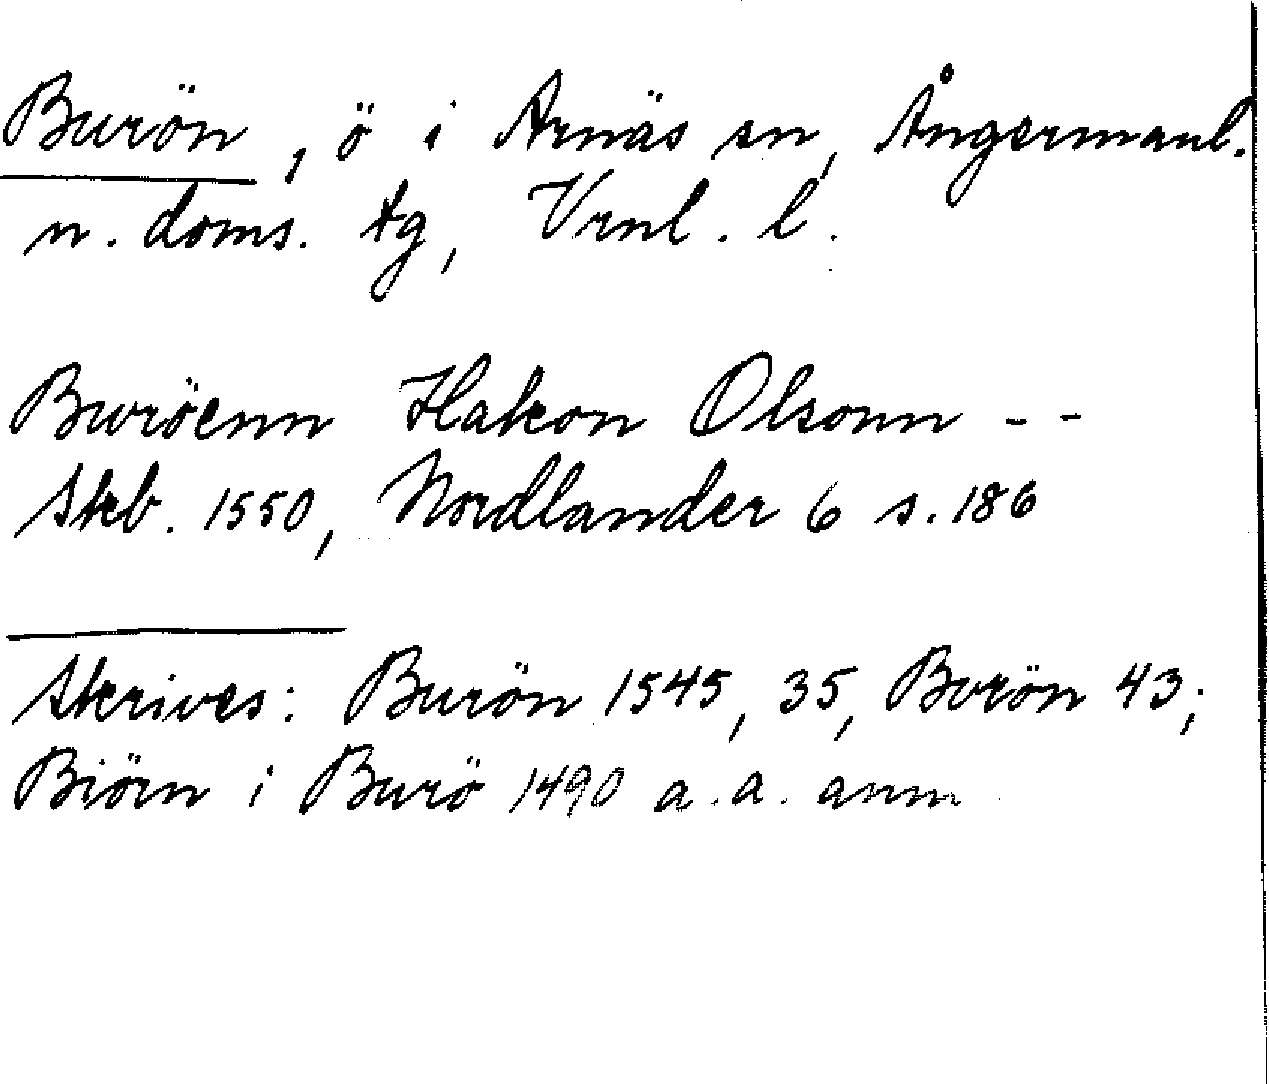 Burön, ö i Arnäs sn, Ångermanl.
n. doms. tg, Vrnl. l.
Buröenn Hakon Olsonn - -
Skb. 1550, Nordlander 6 s. 186
Skrives: Burön 1545, 35, Borön 43;
Biörn i Burö 1490 a. a. anm